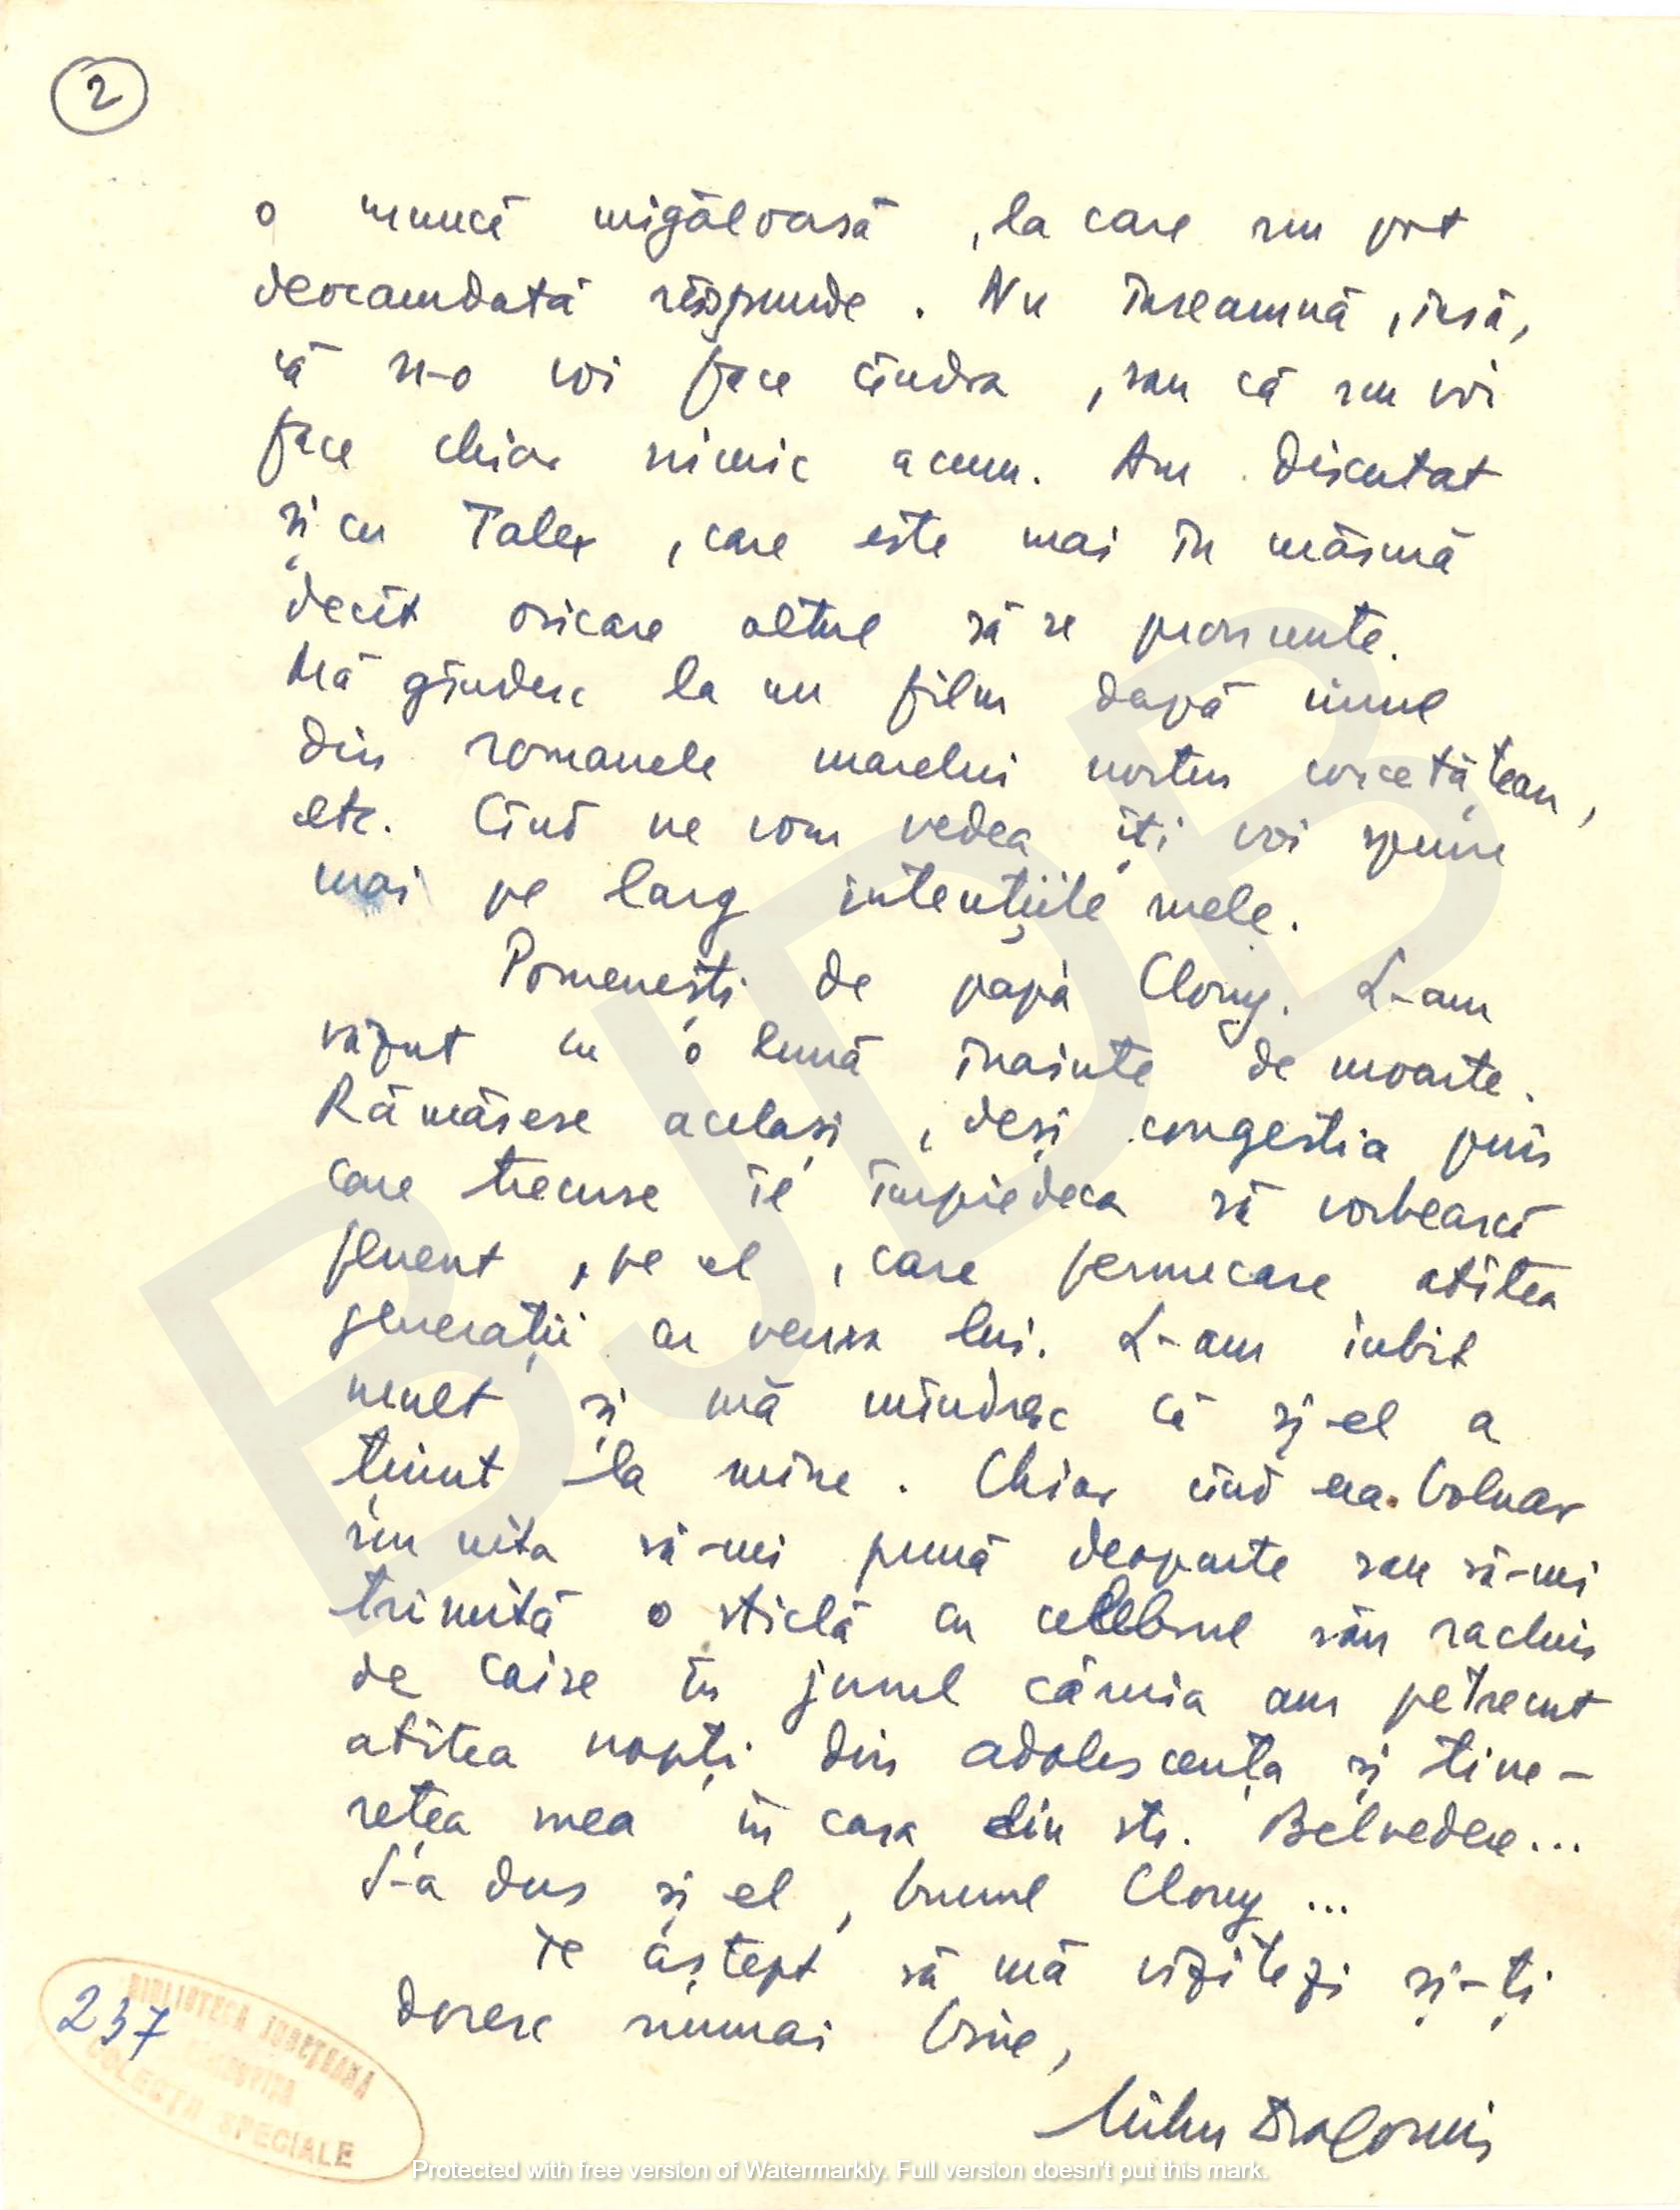 2
o muncă migăloasă, la care nu pot
deocamdată răspunde. Nu înseamnă, însă,
că n-o voi face cîndva, sau că nu voi
face chiar nimic acum. Am discutat
și cu Talex, care este mai în măsură
decît oricare altul să se pronunțe.
Mă gîndesc la un film după unul
din romanele marelui nostru concetățean,
etc. Cînd ne vom vedea îți voi spune
mai pe larg intențiile mele.
Pomenești de papa Clony. L-am
văzut cu o lună înainte de moarte.
Rămăsese același, deși congestia prin
care trecuse îl împiedeca să vorbească
fluent, pe el, care fermecase atîtea
generații cu verva lui. L-am iubit
mult și mă mîndresc că și-el a
ținut la mine. Chiar cînd era bolnav
nu uita să-mi pună deoparte sau să-mi
trimită o sticlă cu celebrul său rachiu
de caise în jurul căruia am petrecut
atîtea nopți din adolescența și tine-
rețea mea în casa din str. Belvedere...
S-a dus și el, bunul Clony...
Te aștept să mă vizitezi și-ți
doresc numai bine,
Mihu Dragomir
237
BIBLIOTECA JUDEȚEANĂ
COLECȚII SPECIALE
BJDB
Protected with free version of Watermarkly. Full version doesn't put this mark.